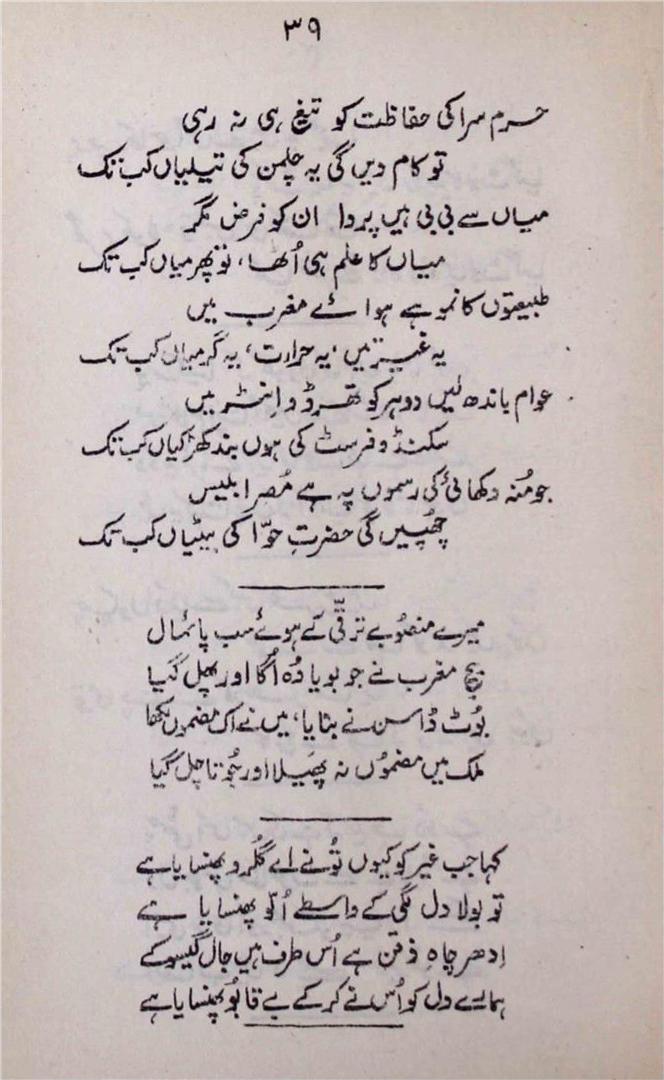 ۳۹
حرم سرا کی حفاظت کو تیغ ہی نہ رہی
تو کام دیں گی یہ چلمن کی تیلیاں کب تک
میاں سے بی بی ہیں پردا ان کو فرض مگر
میاں کا علم ہی اُٹھا، تو پھر میاں کب تک
طبیعتوں کا نمو ہے ہوائے مغرب میں
یہ غیرتیں، یہ حرارت، یہ گرمیاں کب تک
عوام باندھ لیں دوہر کو تھرڈ و انٹر میں
سکنڈ و فرسٹ کی ہوں بند کھڑکیاں کب تک
جو مُنہ دکھائی کی رسموں پہ ہے مُصر ابلیس
چھُپیں گی حضرتِ حوّا کی بیٹیاں کب تک
میرے منصُوبے ترقّی کے ہوئے سب پائمال
بیج مغرب نے جو بویا وُہ اُگا اور پھل گیا
بُوٹ ڈاسن نے بنایا، میں نے اک مضموں لکھا
ملک میں مضموُں نہ پھیلا اور جُوتا چل گیا
کہا جب غیر کو کیوں تُو نے اے گُلرو پھنسایا ہے
تو بولا دل لگی کے واسطے اُلّو پھنسایا ہے
اِدھر چاہِ ذقن ہے اُس طرف ہیں جال گیسو کے
ہمارے دل کو اُس نے کر کے بے قابُو پھنسایا ہے